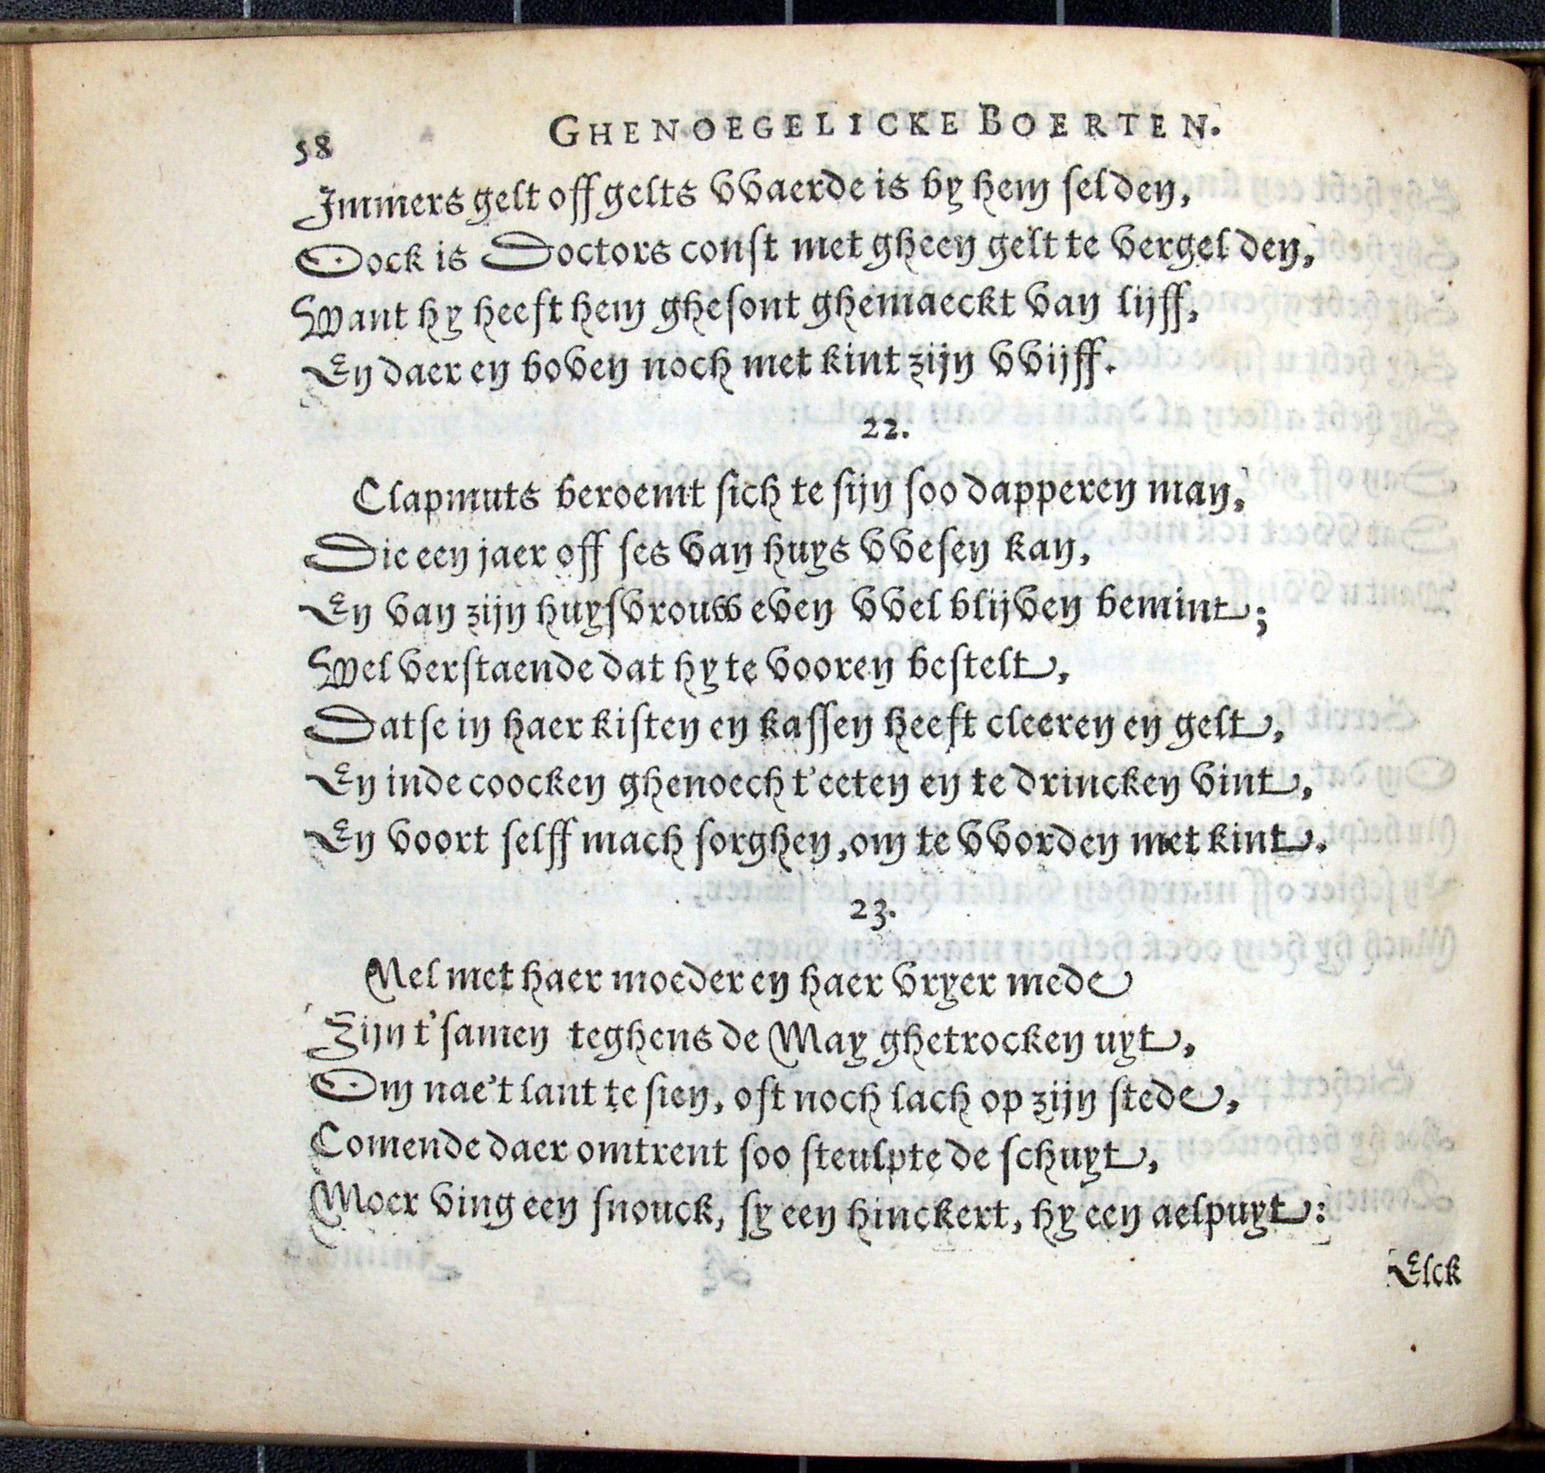 58 GHENOEGELICKE BOERTEN.
Immers gelt off gelts vvaerde is by hem selden,
Oock is Doctors const met gheen gelt te vergelden,
Want hy heeft hem ghesont ghemaeckt van lijff,
En daer en boven noch met kint zijn vvijff.
22.
Clapmuts beroemt sich te sijn soo dapperen man,
Die een jaer off ses van huys vvesen kan,
En van zijn huysvrouw even vvel blijven bemint;
Wel verstaende dat hy te vooren bestelt,
Datse in haer kisten en kassen heeft cleeren en gelt,
En inde coocken ghenoech t'eeten en te drincken vint,
En voort selff mach sorghen, om te vvorden met kint.
23.
Nel met haer moeder en haer vryer mede
Zijn t'samen teghens de May ghetrocken uyt,
Om nae't lant te sien, oft noch lach op zijn stede,
Comende daer omtrent soo steulpte de schuyt,
Moer ving een snouck, sy een hinckert, hy een aelpuyt:
Elck